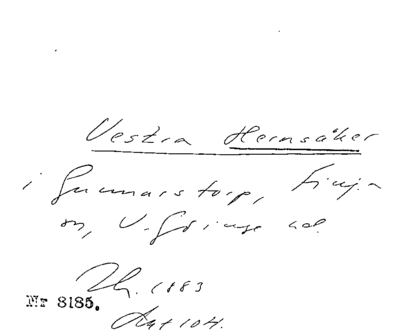 Vestra Hemsåker
i Gunnarstorp, Finja
sn, V. Göinge hd.
1883
Nr 8185.
Akt 104.